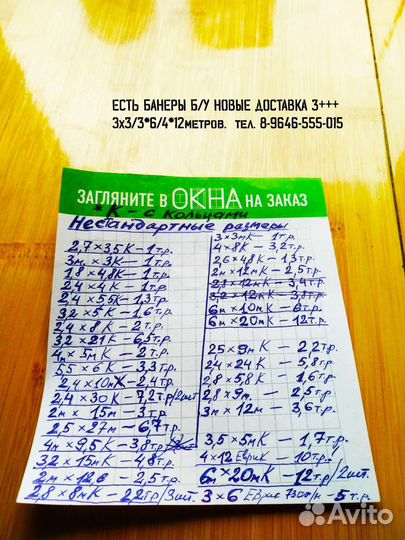 ЕСТЬ БАНЕРЫ Б/У НОВЫЕ ДОСТАВКА 3+++
3х3/3*6/4*12МЕТРОВ. ТЕЛ. 8-9646-555-015
ЗАГЛЯНИТЕ В ОКНА НА ЗАКАЗ
*К - с кольцами
Нестандартные размеры
2,7 x 3,5К - 1т.р.
3м x 3К - 1т.р.
1,8 x 4,8К - 1т.р.
2,4 x 4К - 1т.р.
2,4 x 5,5К - 1,3т.р.
3,2 x 5К - 1,6т.р.
2,4 x 8К - 2т.р.
3,2 x 21К - 6,5т.р.
4м x 5мК - 2т.р.
5,5 x 6К - 3,3т.р.
2,4 x 10мК - 2,4т.р.
2,4 x 30К - 7,2т.р/2шт
2м x 15м - 3т.р.
2,5 x 27м - 6,7т.р.
4м x 9,5К - 3,8т.р.
3,2 x 15мК - 4,8т.р.
2м x 12 - 2,5т.р.
2,8 x 8мК - 2,2т.р/3шт.
3 x 3мК - 1т.р.
4 x 8К - 3,2т.р.
2,6 x 4,8К - 1,3т.р.
2м x 12мК - 2,5т.р.
2,8 x 12мК - 3,4т.р.
3,2 x 12мК - 3,8т.р.
6м x 10мК - 6т.р.
6м x 20мК - 12т.р.
2,5 x 9мК - 2,2т.р.
2,4 x 24К - 5,8т.р.
2,8 x 5,8К - 1,6т.р.
2,8 x 9м. - 2,5т.р.
3м x 12м - 3,6т.р.
3,5 x 5мК - 1,7т.р.
4 x 12 ЕвриК - 10т.р.
6м x 20мК - 12т.р/2шт.
3 x 6 - 5т.р.
Avito